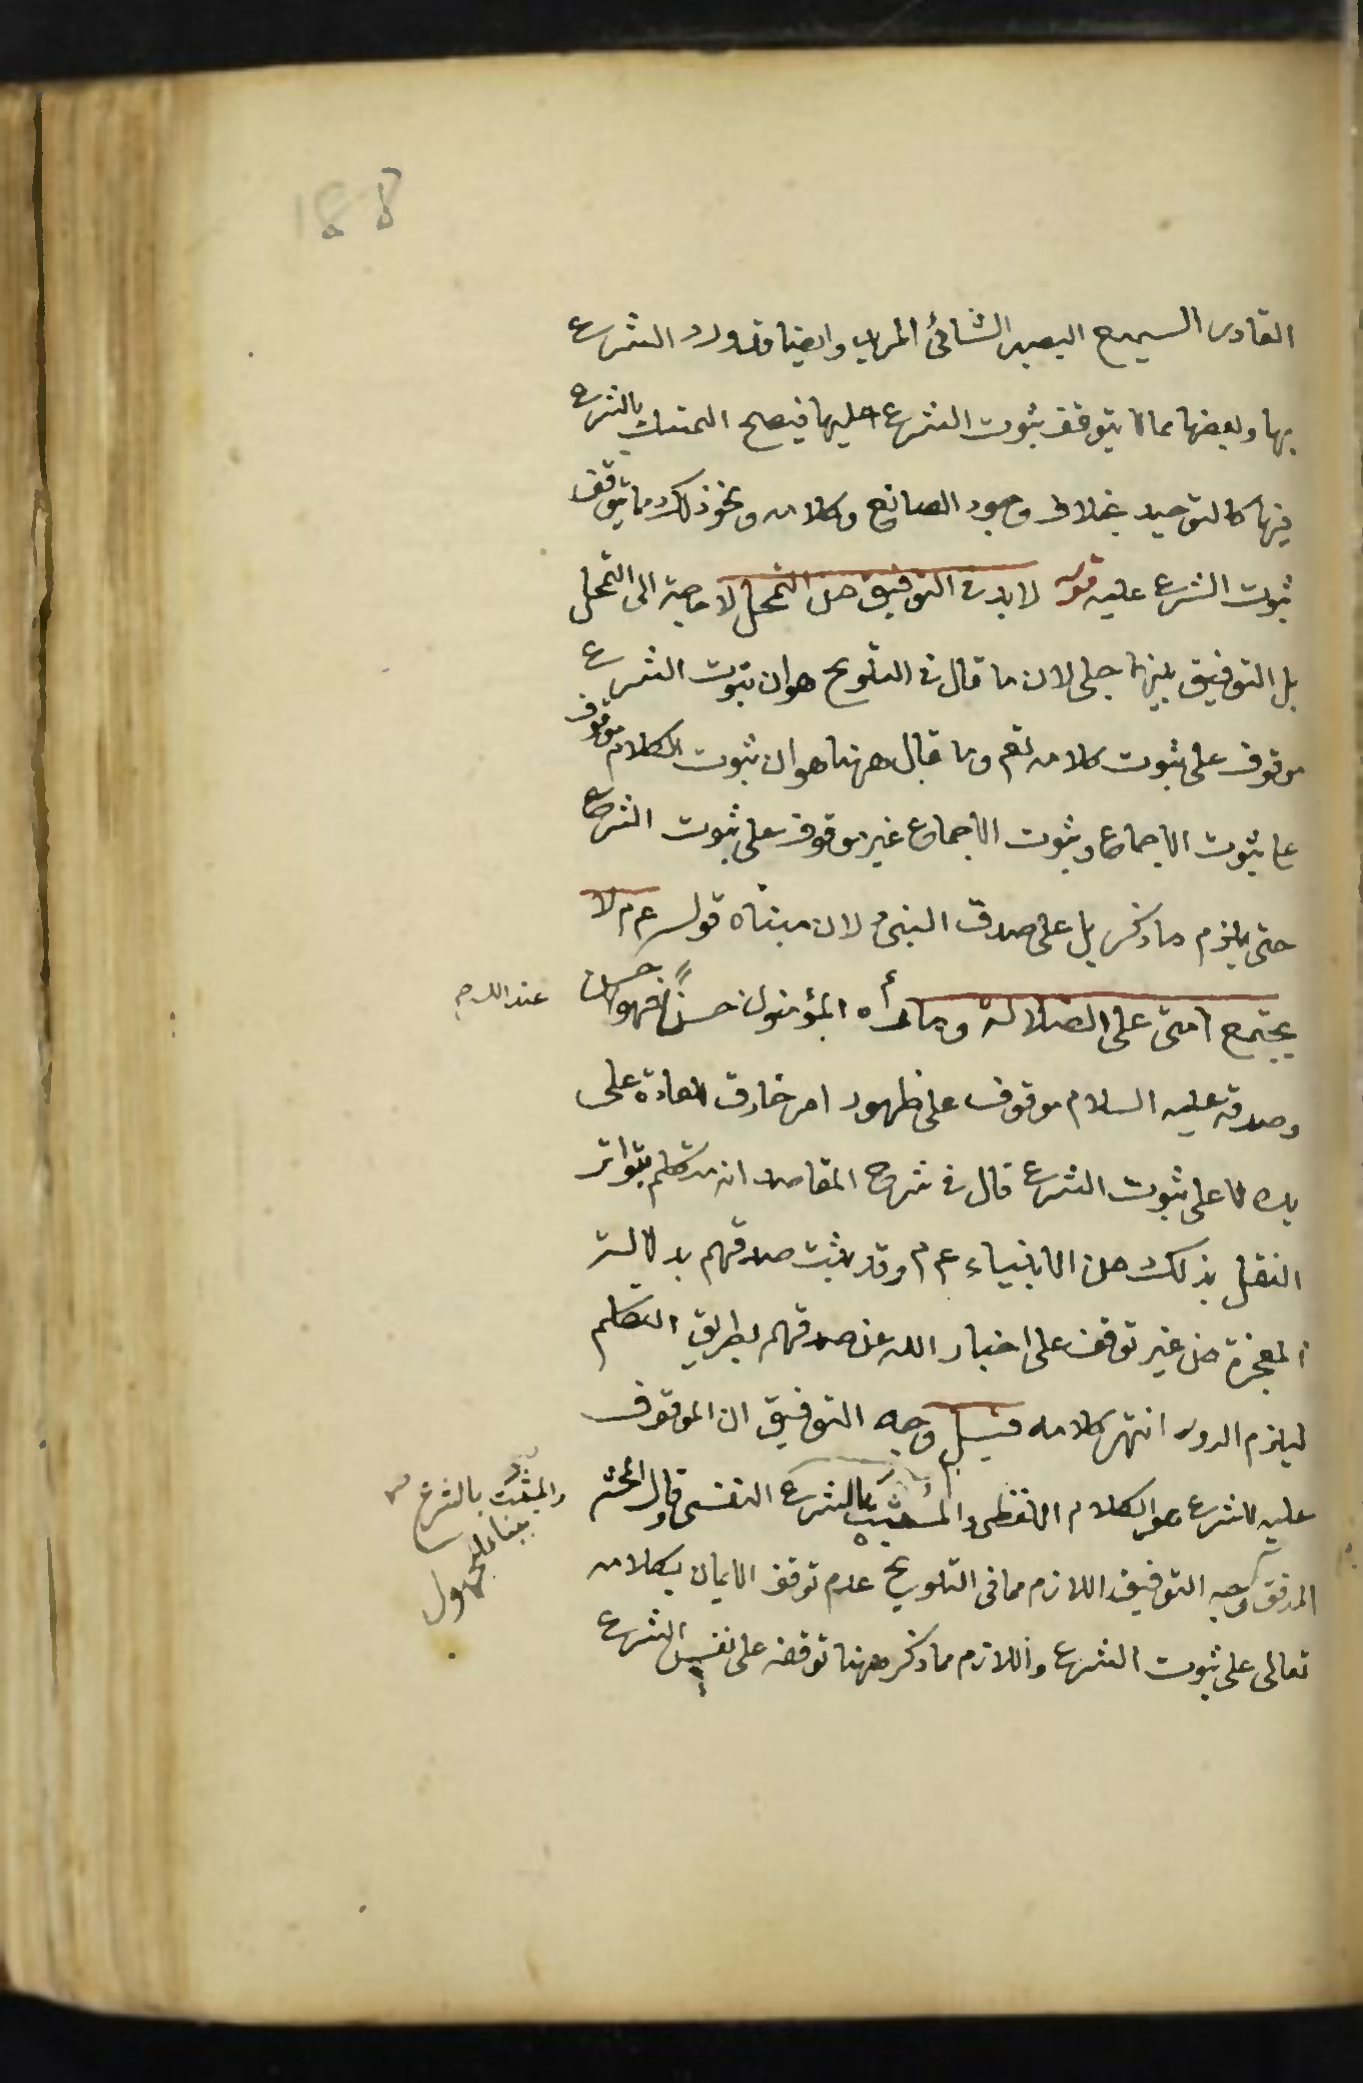 188
القادر السميع البصير الشائى المريد وايضا قد ورد الشرع
بها وبعضها مما لا يتوقف ثبوت الشرع عليها فيصح التمسك بالشرع
فيها كالتوحيد بخلاف وجود الصانع وكلامه ونحو ذلك مما يتوقف
ثبوت الشرع عليه قوله لا بد فى التوفيق من التمحل لا حاجة الى التمحل
بل التوفيق بينهما جلى لان ما قال فى التلويح هو ان ثبوت الشرع
موقوف على ثبوت كلامه تعم وما قال ههنا هو ان ثبوت الكلام موقوف
على ثبوت الاجماع وثبوت الاجماع غير موقوف على ثبوت الشرع
حتى يلزم ما ذكر بل على صدق النبى لان مبناه قوله عم لا
يجتمع امتى على الضلالة وما رأه المؤمنون حسنًا فهو حسن
عند الله
وصدقه عليه السلام موقوف على ظهور امر خارق العادة على
يده لا على ثبوت الشرع قال فى شرح المقاصد انه متكلم بتواتر
النقل بذلك من الانبياء عم وقد يثبت صدقهم بدلالة
المعجزة من غير توقف على اخبار الله عن صدقهم بطريق التكلم
ليلزم الدور انتهى كلامه قيل وجه التوفيق ان الموقوف
عليه للشرع هو الكلام اللفظى والمثبت بالشرع النفسى قال المحشى
والمثبت بالشرع
بيناء المجهول
المدقق وجه التوفيق اللازم مما فى التلويح عدم توقف الايمان بكلامه
تعالى على ثبوت الشرع واللازم مما ذكر ههنا توقفه على نفس الشرع